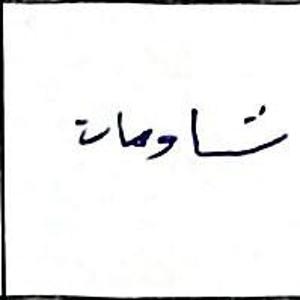 شاومات